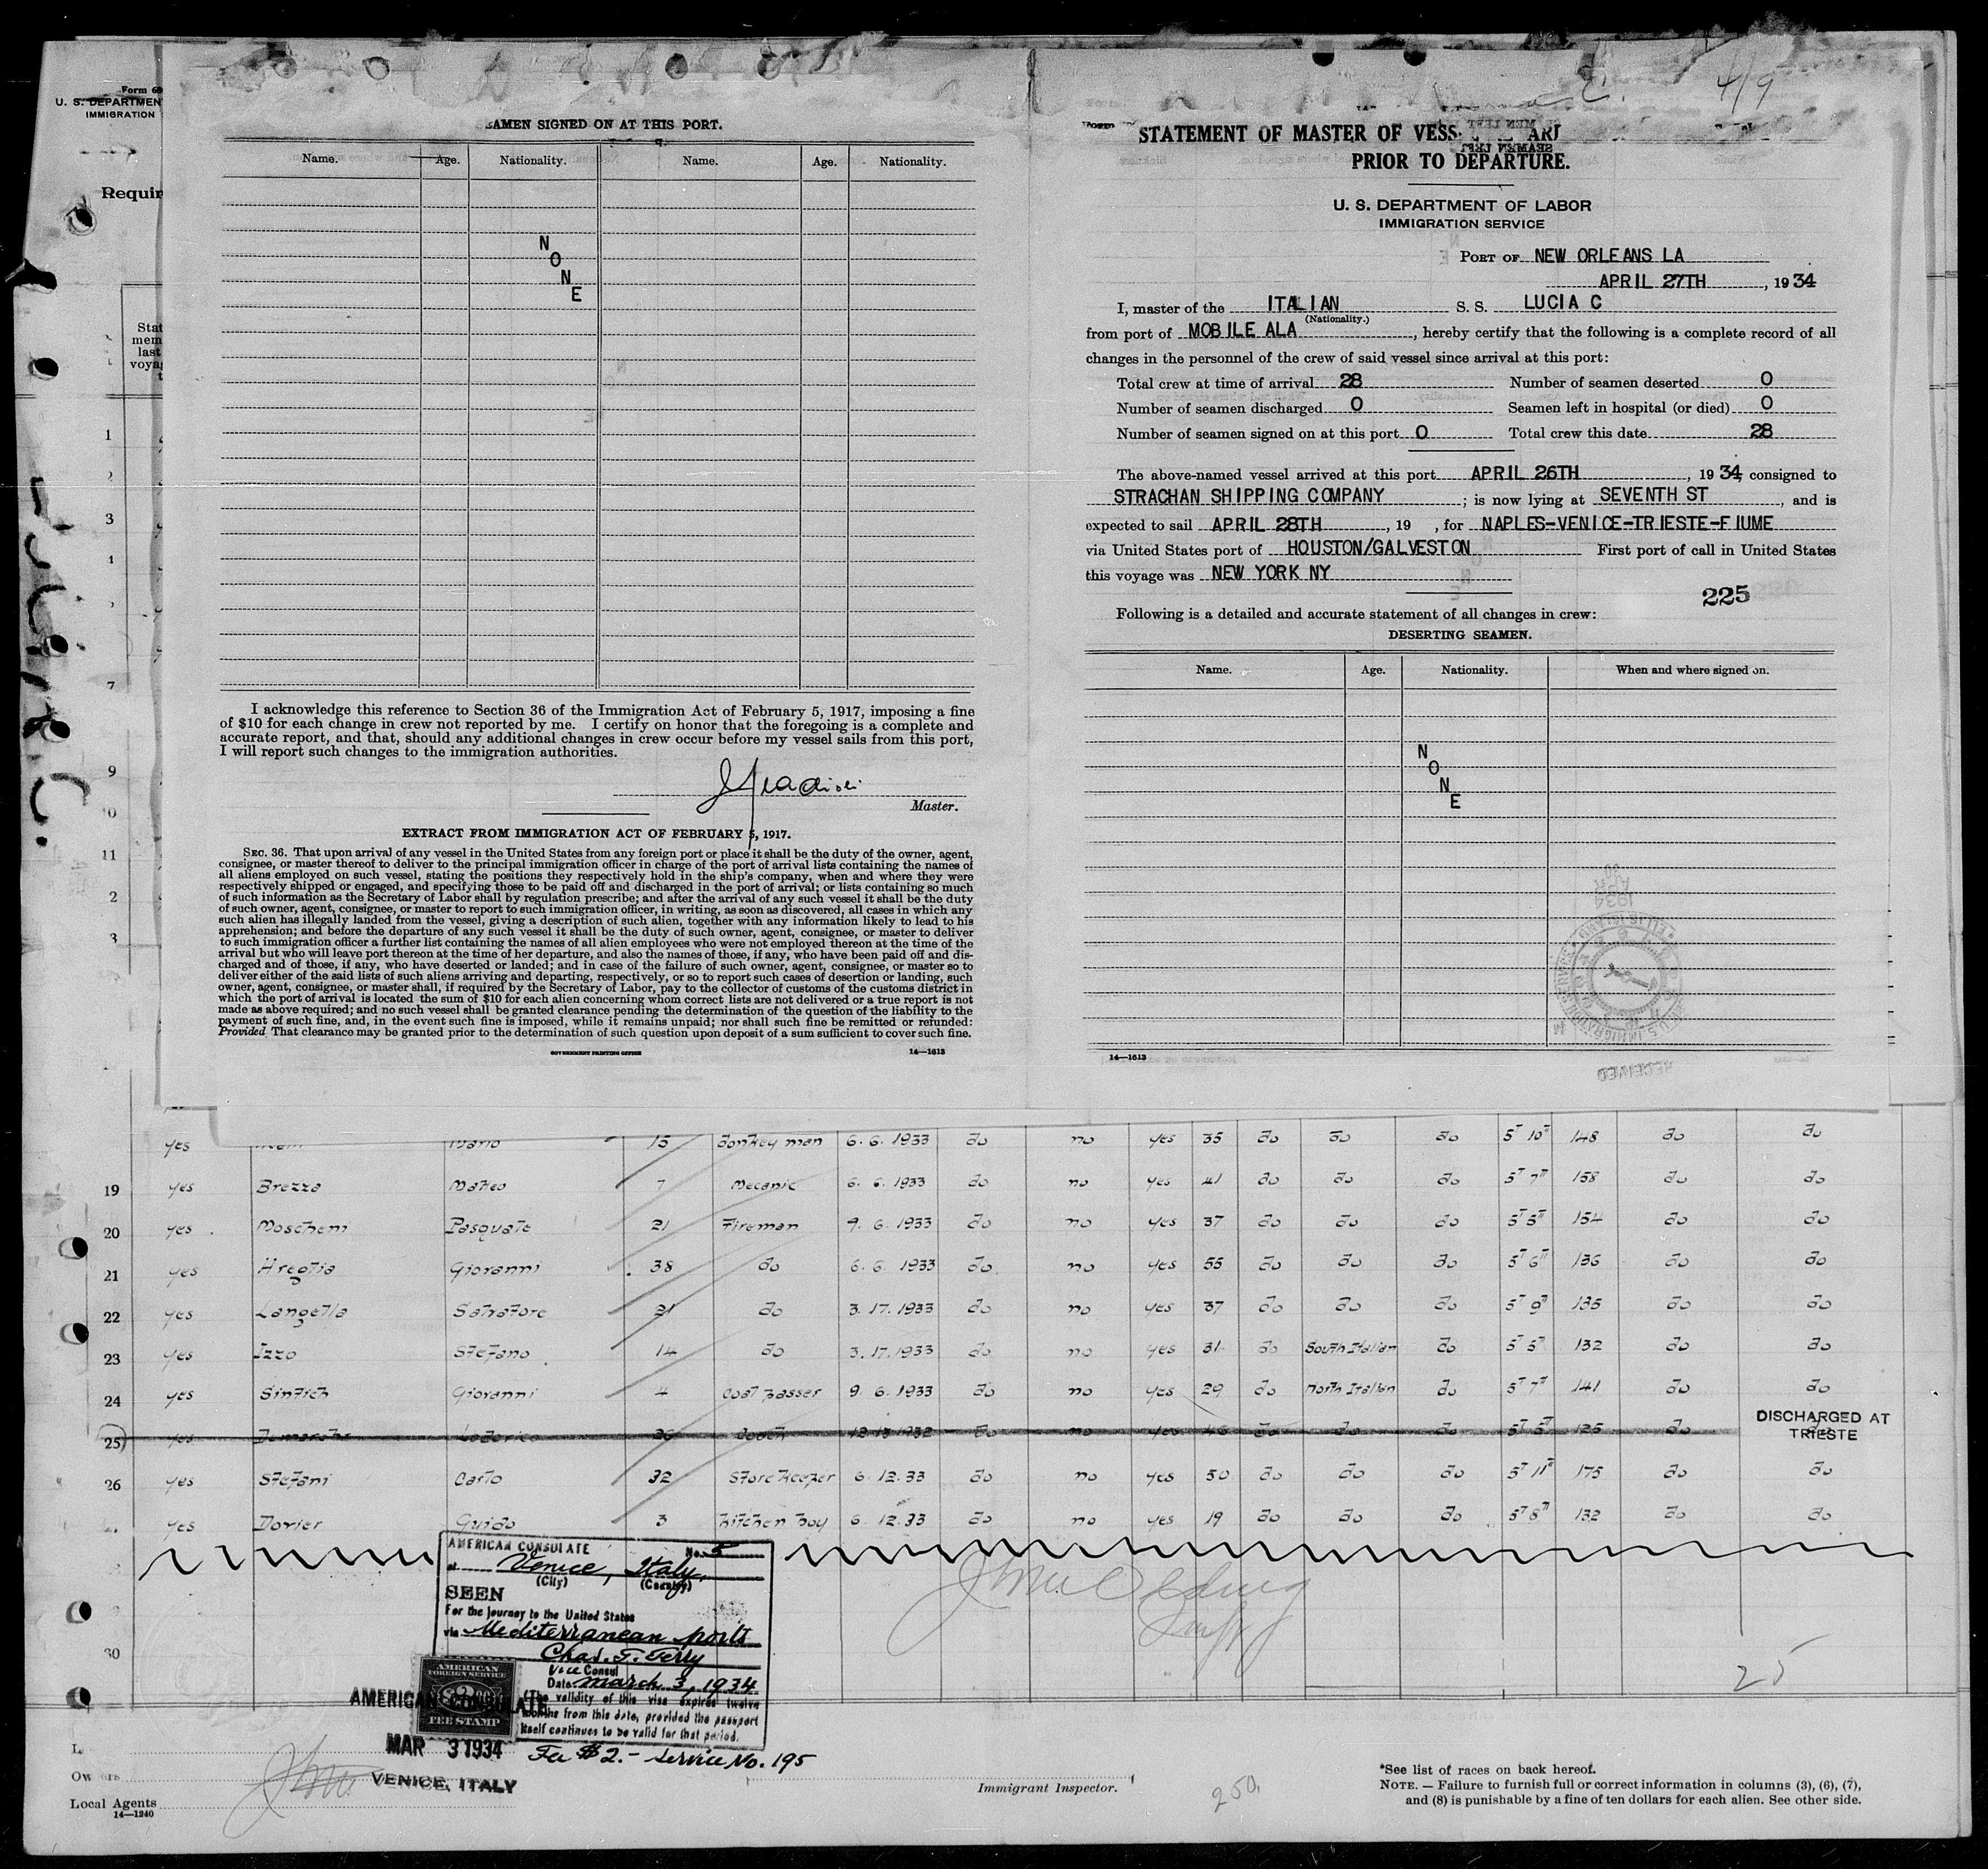 Form 68
U. S. DEPARTMEN
IMMIGRATION
Requir
Stat
mem
last
voyag
t
AMEN SIGNED ON AT THIS PORT.
Name. Age. Nationality. Name. Age. Nationality.
N
O
N
E
I acknowledge this reference to Section 36 of the Immigration Act of February 5, 1917, imposing a fine
of $10 for each change in crew not reported by me. I certify on honor that the foregoing is a complete and
accurate report, and that, should any additional changes in crew occur before my vessel sails from this port,
I will report such changes to the immigration authorities.
Master.
EXTRACT FROM IMMIGRATION ACT OF FEBRUARY 5, 1917.
SEC. 36. That upon arrival of any vessel in the United States from any foreign port or place it shall be the duty of the owner, agent,
consignee, or master thereof to deliver to the principal immigration officer in charge of the port of arrival lists containing the names of
all aliens employed on such vessel, stating the positions they respectively hold in the ship's company, when and where they were
respectively shipped or engaged, and specifying those to be paid off and discharged in the port of arrival; or lists containing so much
of such information as the Secretary of Labor shall by regulation prescribe; and after the arrival of any such vessel it shall be the duty
of such owner, agent, consignee, or master to report to such immigration officer, in writing, as soon as discovered, all cases in which any
such alien has illegally landed from the vessel, giving a description of such alien, together with any information likely to lead to his
apprehension; and before the departure of any such vessel it shall be the duty of such owner, agent, consignee, or master to deliver
to such immigration officer a further list containing the names of all alien employees who were not employed thereon at the time of the
arrival but who will leave port thereon at the time of her departure, and also the names of those, if any, who have been paid off and dis-
charged and of those, if any, who have deserted or landed; and in case of the failure of such owner, agent, consignee, or master so to
deliver either of the said lists of such aliens arriving and departing, respectively, or so to report such cases of desertion or landing, such
owner, agent, consignee, or master shall, if required by the Secretary of Labor, pay to the collector of customs of the customs district in
which the port of arrival is located the sum of $10 for each alien concerning whom correct lists are not delivered or a true report is not
made as above required; and no such vessel shall be granted clearance pending the determination of the question of the liability to the
payment of such fine, and, in the event such fine is imposed, while it remains unpaid; nor shall such fine be remitted or refunded:
Provided That clearance may be granted prior to the determination of such question upon deposit of a sum sufficient to cover such fine.
GOVERNMENT PRINTING OFFICE 14—1613
4/9
STATEMENT OF MASTER OF VESS ARI
PRIOR TO DEPARTURE.
U. S. DEPARTMENT OF LABOR
IMMIGRATION SERVICE
PORT OF NEW ORLEANS LA
APRIL 27TH, 1934
I, master of the ITALIAN S. S. LUCIA C
(Nationality.)
from port of MOBILE ALA, hereby certify that the following is a complete record of all
changes in the personnel of the crew of said vessel since arrival at this port:
Total crew at time of arrival 28 Number of seamen deserted 0
Number of seamen discharged 0 Seamen left in hospital (or died) 0
Number of seamen signed on at this port 0 Total crew this date 28
The above-named vessel arrived at this port APRIL 26TH, 1934, consigned to
STRACHAN SHIPPING COMPANY; is now lying at SEVENTH ST, and is
expected to sail APRIL 28TH, 19 , for NAPLES-VENICE-TRIESTE-FIUME
via United States port of HOUSTON/GALVESTON First port of call in United States
this voyage was NEW YORK NY
225
Following is a detailed and accurate statement of all changes in crew:
DESERTING SEAMEN.
Name. Age. Nationality. When and where signed on.
N
O
N
E
14—1613
RECEIVED
yes Mario 15 donkey man 6. 6. 1933 do no yes 35 do do do 5' 10" 148 do do
19 yes Brezza Mateo 7 Mecanic 6. 6. 1933 do no yes 41 do do do 5' 7" 158 do do
20 yes Moscheni Pasquale 21 Fireman 9. 6. 1933 do no yes 37 do do do 5' 5" 154 do do
21 yes Hreglia Giovanni 38 do 6. 6. 1933 do no yes 55 do do do 5' 6" 136 do do
22 yes Langella Salvatore 21 do 3. 17. 1933 do no yes 37 do do do 5' 9" 135 do do
23 yes Izzo Stefano 14 do 3. 17. 1933 do no yes 31 do South Italian do 5' 5" 132 do do
24 yes Sintich Giovanni 4 Coal passer 9. 6. 1933 do no yes 29 do North Italian do 5' 7" 141 do do
25 yes 36 Cook 12 13 1932 do no yes 46 do do do 5' 5" 125 do DISCHARGED AT
TRIESTE
26 yes Stefani Carlo 32 Store Keeper 6. 12. 33 do no yes 50 do do do 5' 11" 175 do do
yes Dorier Guido 3 Kitchen boy 6. 12. 33 do no yes 19 do do do 5' 8" 132 do do
AMERICAN CONSULATE No. 5
at Venice, Italy.
(City) (Country)
SEEN
For the journey to the United States
via Mediterranean ports
Chas. T. Terry
Vice Consul
Date March 3, 1934
(The validity of this visa expires twelve
months from this date, provided the passport
itself continues to be valid for that period.
Fee $2.- Service No. 195
AMERICAN
FOREIGN SERVICE
$2.00
FEE STAMP
AMERICAN CONSULATE
MAR 3 1934
VENICE, ITALY
30
25
Owners
Local Agents
14—1240
Immigrant Inspector.
250
*See list of races on back hereof.
NOTE. — Failure to furnish full or correct information in columns (3), (6), (7),
and (8) is punishable by a fine of ten dollars for each alien. See other side.